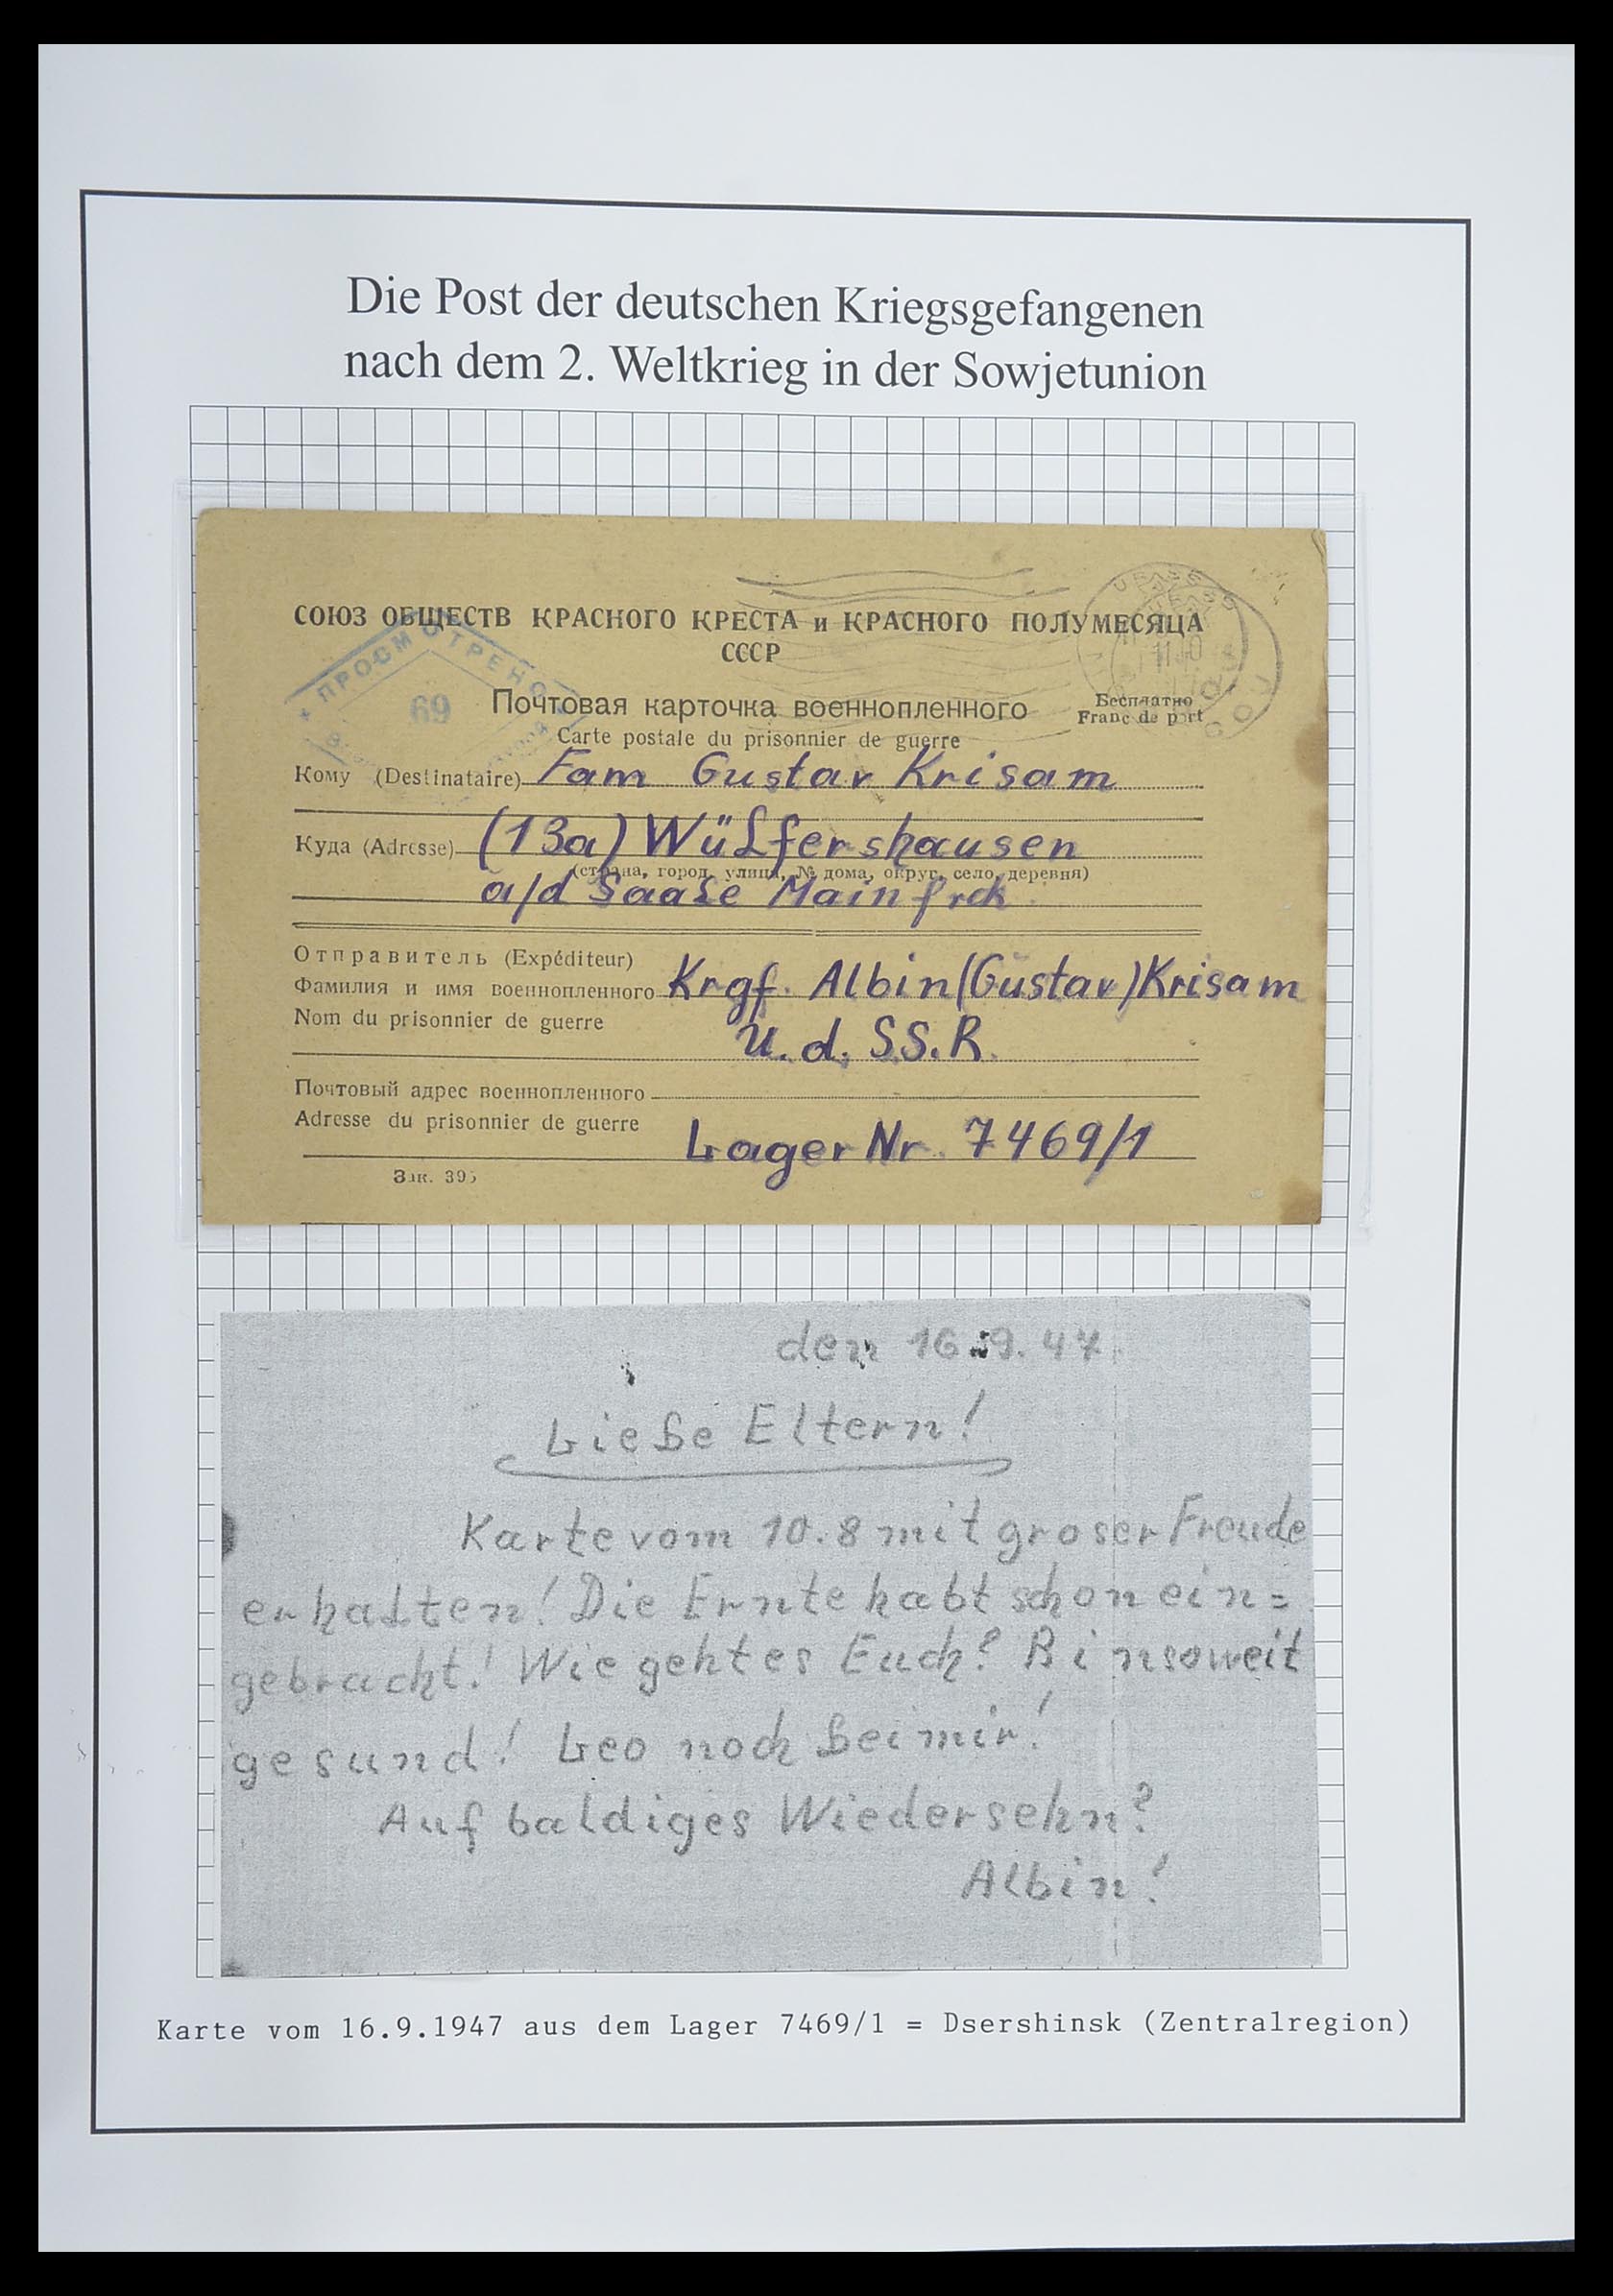 Die Post der deutschen Kriegsgefangenen
nach dem 2. Weltkrieg in der Sowjetunion
СОЮЗ ОБЩЕСТВ КРАСНОГО КРЕСТА и КРАСНОГО ПОЛУМЕСЯЦА
СССР
ПРОСМОТРЕНО
69
Почтовая карточка военнопленного
Бесплатно
Franc de port
Carte postale du prisonnier de guerre
Кому (Destinataire) Fam Gustav Krisam
Куда (Adresse) (13a) Wülfershausen
(страна, город, улица, № дома, округ, село, деревня)
a/d Saale Mainfrck.
Отправитель (Expéditeur)
Фамилия и имя военнопленного Krgf. Albin (Gustav) Krisam
Nom du prisonnier de guerre
U. d. S.S.R.
Почтовый адрес военнопленного
Adresse du prisonnier de guerre
Lager Nr. 7469/1
Зак. 395
den 16.9.47.
Liebe Eltern!
Karte vom 10.8 mit groser Freude
erhalten! Die Ernte habt schon ein=
gebracht! Wie geht es Euch? Bin soweit
gesund! Leo noch bei mir!
Auf baldiges Wiedersehn?
Albin!
Karte vom 16.9.1947 aus dem Lager 7469/1 = Dsershinsk (Zentralregion)